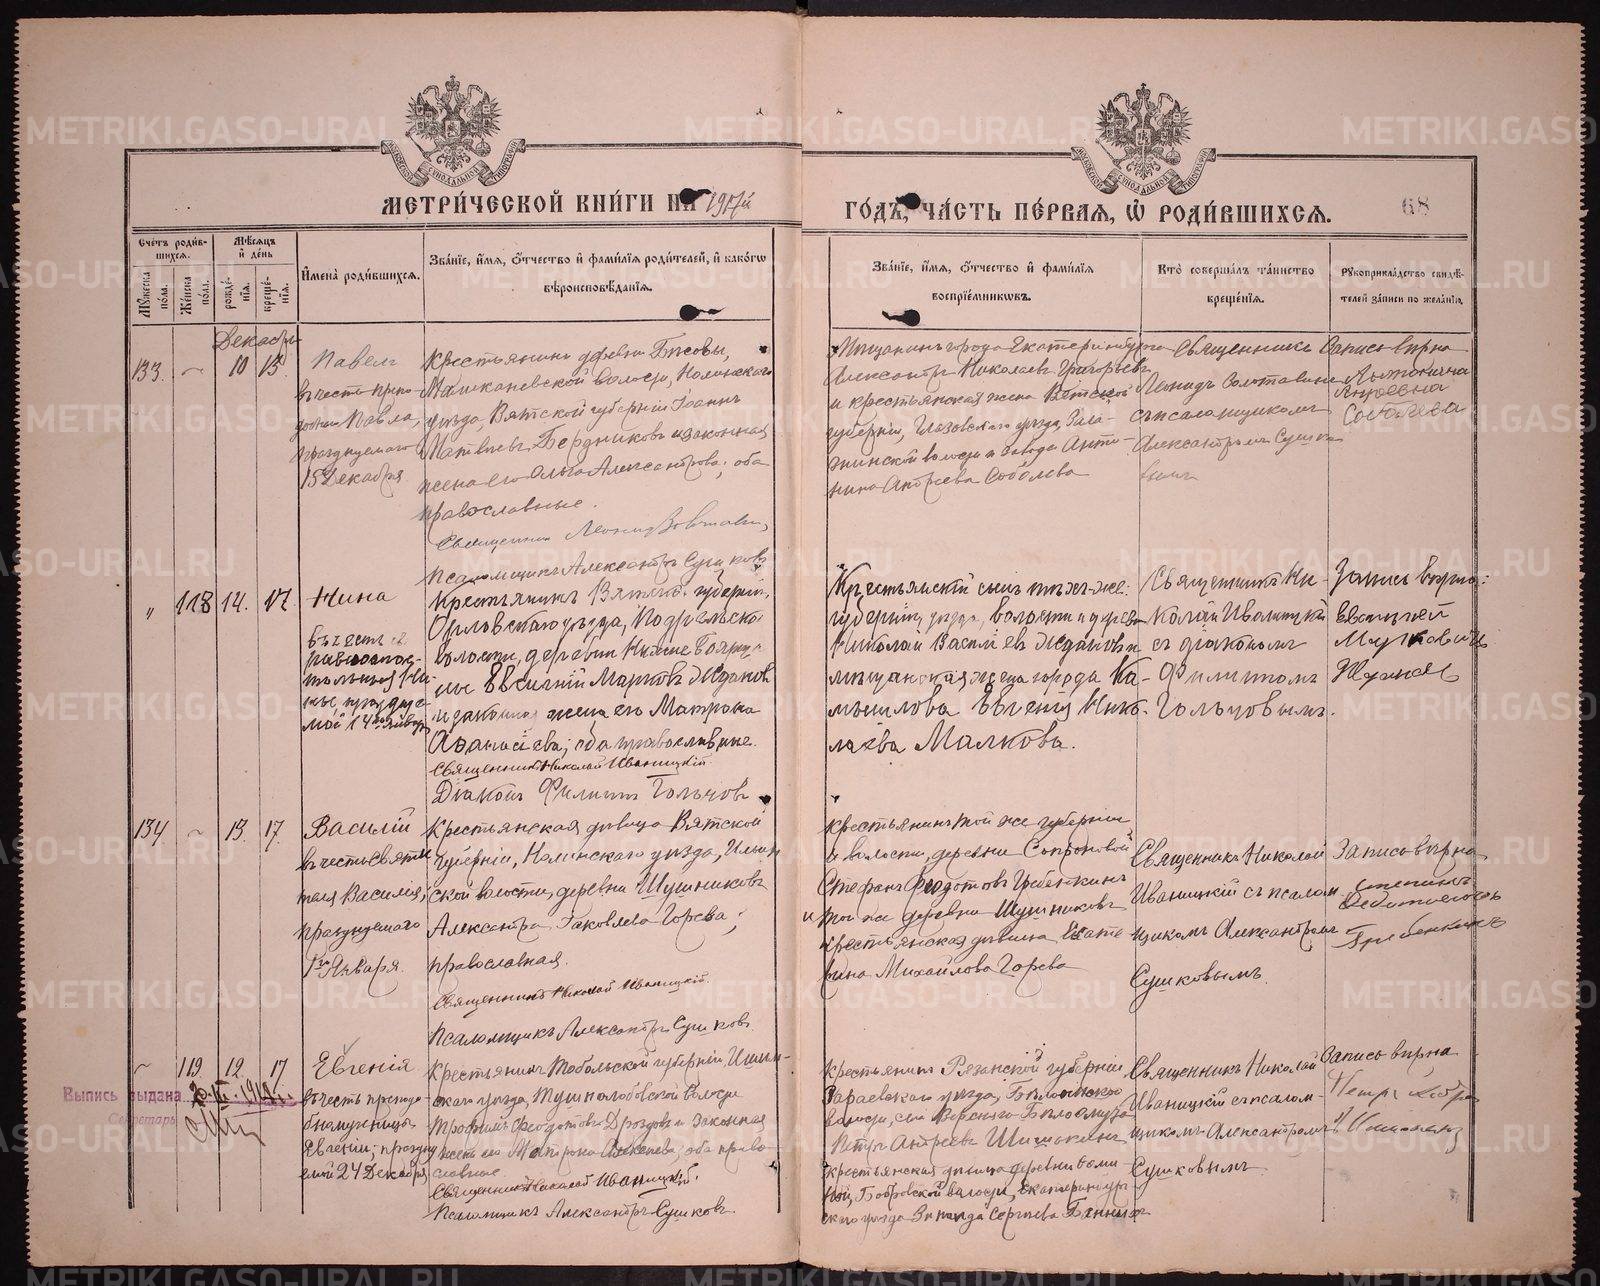 МЕТРИ́ЧЕСКОЙ КНИ́ГИ НА 1917й
ГОДЪ, ЧА́СТЬ ПЕ́РВАЯ, Ѡ РОДИ́ВШИХСЯ.
68
Сче́тъ роди́вшихся.
Му́жеска по́ла.
Же́нска по́ла.
Мѣ́сяцъ и де́нь
рожде́нія.
креще́нія.
И҆мена̀ роди́вшихся.
Зва́ніе, и҆́мя, ѻ҆́тчество и҆ фами́лія роди́телей, и҆ како́гѡ
вѣроисповѣ́данія.
Зва́ніе, и҆́мя, ѻ҆́тчество и҆ фами́лія
воспріе́мникѡвъ.
Кто̀ соверша́лъ та́инство
креще́нія.
Рукоприкла́дство свидѣ́телей за́писи по жела́нію.
Декабрь
133. 10 13
Павелъ
въ честь препо-
добн. Павла,
празднуемаго
15 Декабря.
Крестьянинъ деревни
волости, Нолинскаго
уѣзда, Вятской губерніи Іоаннъ
Матвѣевъ Бердниковъ и законная
жена его Ольга Александрова; оба
православные.
Священникъ Леонидъ
Псаломщикъ Александръ Сушковъ
Мѣщанинъ города Екатеринбурга
Александръ Николаевъ Григорьевъ
и крестьянская жена Вятской
губерніи, Глазовскаго уѣзда,
волости и завода Анто-
нина Андреева Соболева
Священникъ
Леонидъ
съ псаломщикомъ
Александромъ Сушко-
вымъ
Запись вѣрна
Антонина
Андреевна
Соболева
" 118 14. 17.
Нина
въ честь
равноапос-
тольныя Ни-
ны, праздуе-
мой 14го Января
Крестьянинъ Вятской губерніи,
Орловскаго уѣзда,
волости, деревни
Евсигній Марковъ Ждановъ
и законная жена его Матрона
Аѳанасіева; оба православные.
Священникъ Николай Иваницкій
Діаконъ Филиппъ Гольцовъ
Крестьянскій сынъ тѣхъ-же:
губерніи, уѣзда, волости и деревни
Николай Василіевъ Ждановъ и
мѣщанская жена города Ка-
мышлова Евгенія Нико-
лаева Малкова.
Священникъ Ни-
колай Иваницкій
съ діакономъ
Филиппомъ
Гольцовымъ.
Запись вѣрна:
Евсигней
Маркович
Жданов
134 13. 17.
Василій
въ честь святи-
теля Василія;
празднуемаго
1го Января.
Крестьянская дѣвица Вятской
губерніи, Нолинскаго уѣзда, Ильин-
ской волости, деревни Шушниковъ
Александра Іаковлева Горева;
православная.
Священникъ Николай Иваницкій.
Псаломщикъ Александръ Сушковъ.
Крестьянинъ той же губерніи
и волости, деревни
Стефанъ Ѳедотовъ Гребенкинъ
и той же деревни Шушниковъ
крестьянская дѣвица Екате-
рина Михайлова Горева
Священникъ Николай
Иваницкій съ псалом-
щикомъ Александромъ
Сушковымъ.
Запись вѣрна
119. 12. 17
Евгенія
въ честь преподо-
бномученицы
Евгеніи; праздну-
емой 24 Декабря
Крестьянинъ Тобольской губерніи, Ишим-
скаго уѣзда, волости
Трофимъ Ѳеодотовъ Дроздовъ и законная
жена его Матрона Алексѣева; оба право-
славные
Священникъ Николай Иваницкій.
Псаломщикъ Александръ Сушковъ.
Крестьянинъ Рязанской губерніи,
Зараевскаго уѣзда,
волости, села
Петръ Андреевъ Шишкинъ
крестьянская дѣвица деревни
Бобровской волости, Екатеринбург-
скаго уѣзда Зинаида Сергѣева
Священникъ Николай
Иваницкій съ псалом-
щикомъ Александромъ
Сушковымъ
Запись вѣрна
Выпись выдана
Секретарь
METRIKI.GASO-URAL.RU